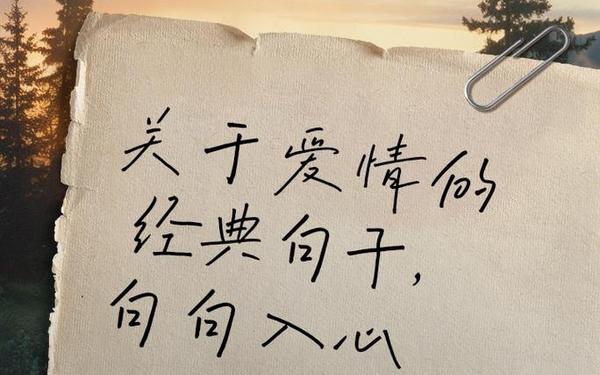 关于爱情的
经典句子，
句句入心